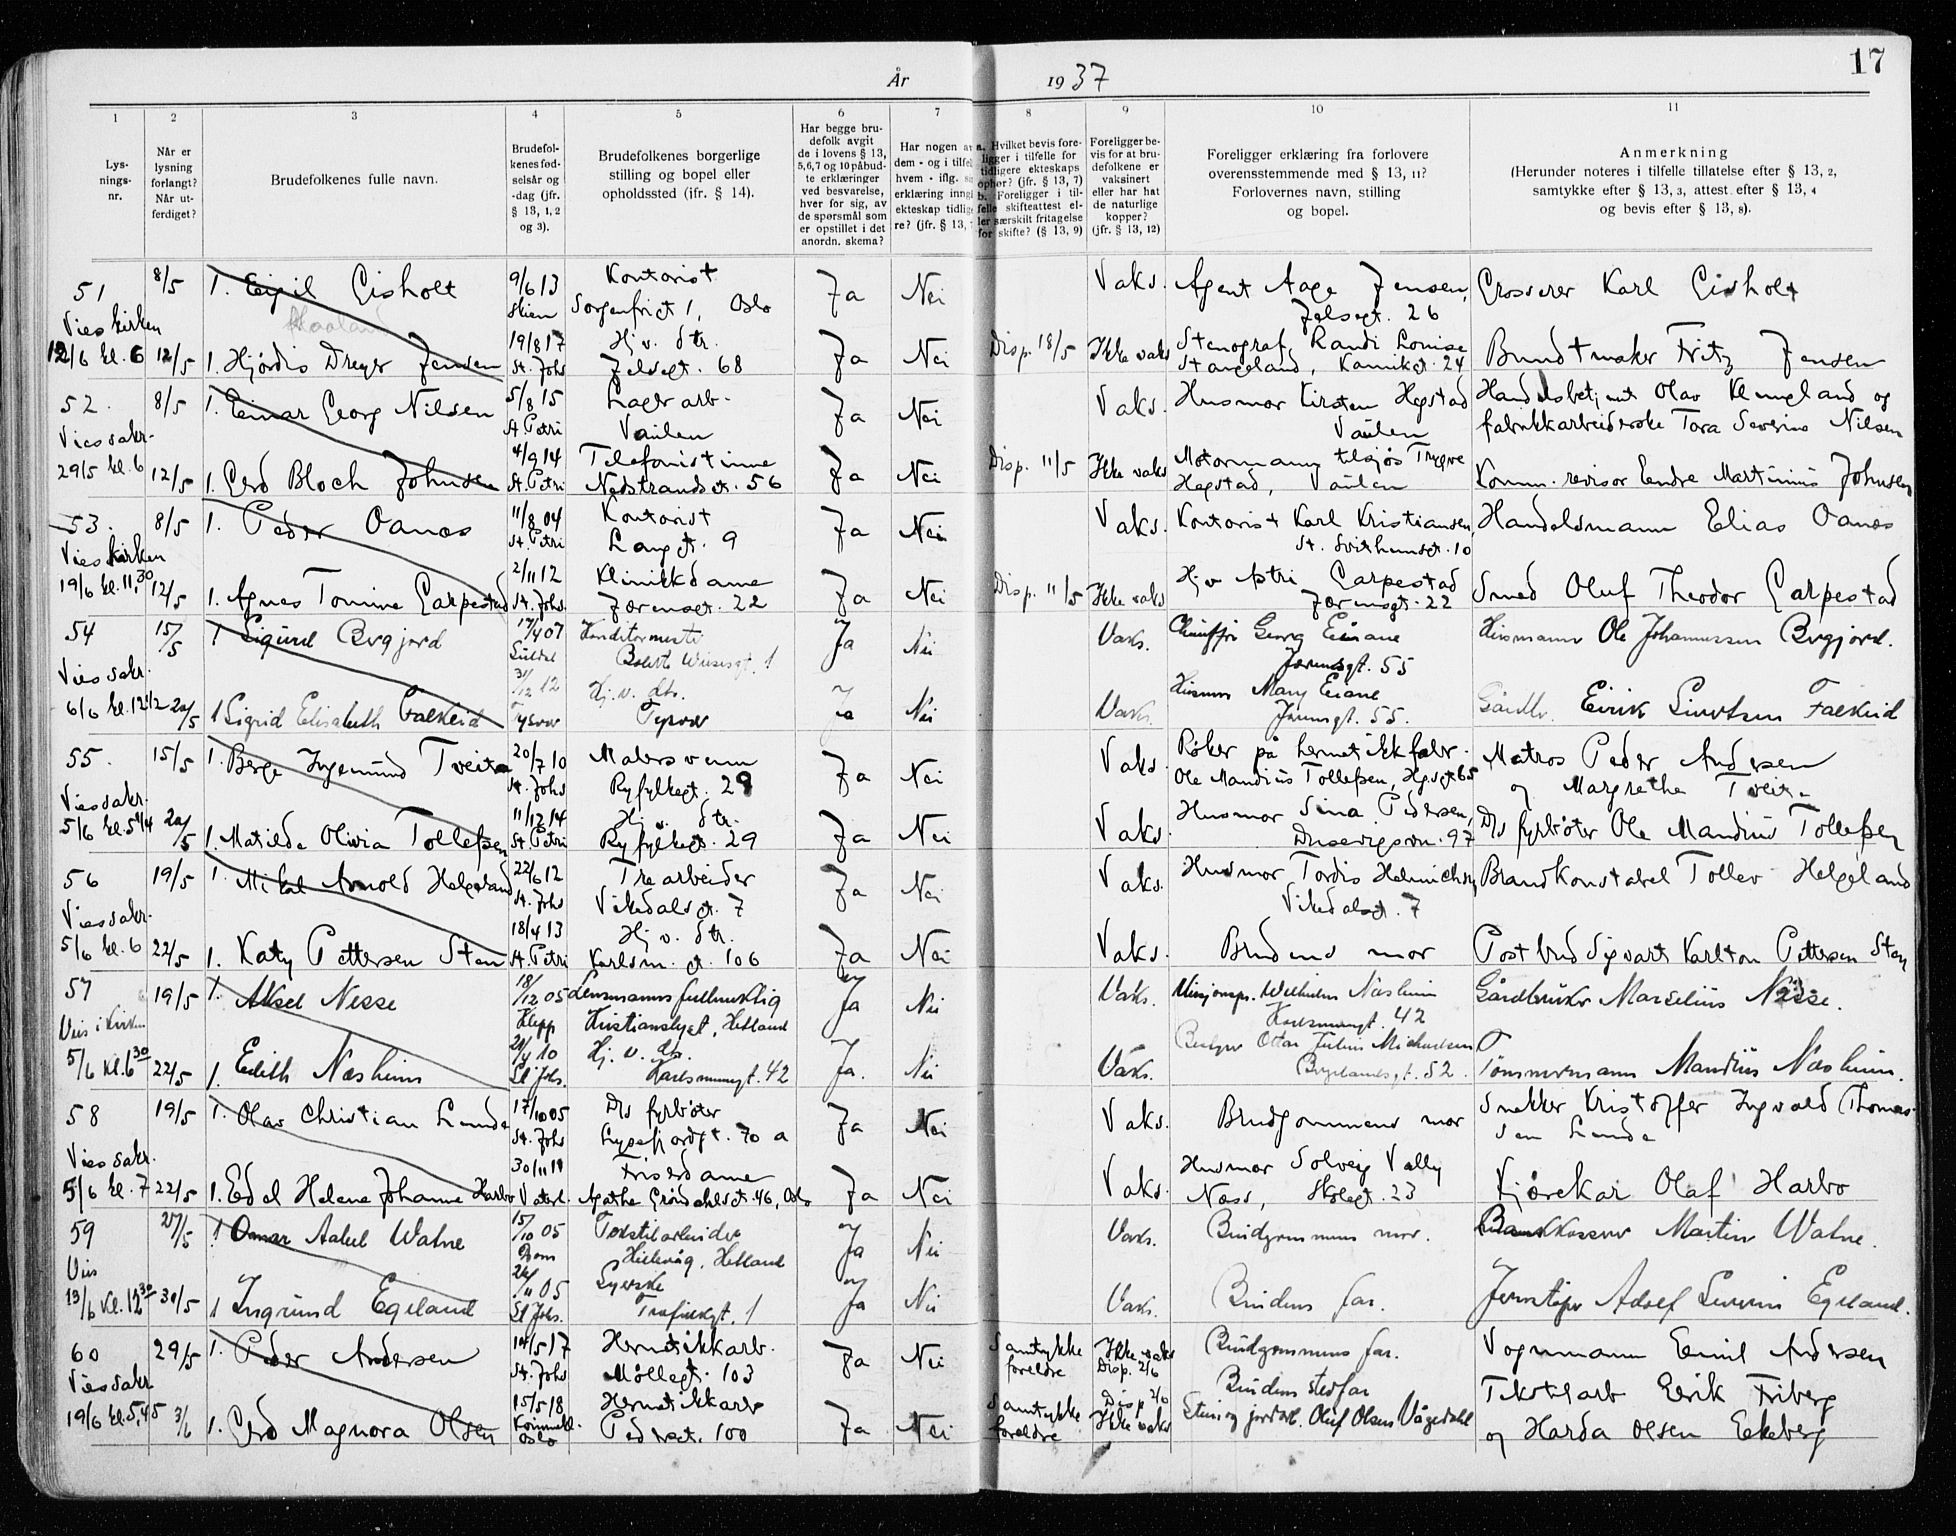 17
År 1937
1 2 3 4 5 6 7 8 9 10 11
Lysningsnr.
Når er lysning forlangt? Når utferdiget?
Brudefolkenes fulle navn.
Brudefolkenes fødselsår og -dag (jfr. § 13, 1, 2 og 3).
Brudefolkenes borgerlige stilling og bopel eller opholdssted (ifr. § 14).
Har begge brudefolk avgit de i lovens § 13, 5,6,7 og 10 påbudte erklæringer ved besvarelse, hver for sig, av de spørsmål som er opstillet i det anordn. skema?
Foreligger bevis for at brudefolkene er vaksinert eller har hat de naturlige kopper? (jfr. § 13, 12)
Foreligger erklæring fra forlovere overensstemmende med § 13, 11? Forlovernes navn, stilling og bopel.
Anmerkning
(Herunder noteres i tilfelle tillatelse efter § 13, 2, samtykke efter § 13, 3, attest efter § 13, 4 og bevis efter § 13, 8).
51 8/5 1. Eigil Gisholt 9/6 13 Skien Kontorist Sorgenfrigt 1, Oslo Ja Nei Vaks. Agent Aage Jensen, Jelsagt. 26 Grosserer Karl Gisholt
Vies kirken
12/6 kl. 6 12/5 1. Hjørdis Dreyer Jensen 19/8 17 St. Johs Hj. v. Str. Jelsagt. 68 Ja Nei Disp. 18/5 Ikke vaks Stenograf Randi Louise Stangeland, Kannikgt. 24 Bundtmaker Fritz Jensen
52. 8/5 1. Einar Georg Nilsen 5/8 15 St. Petri Lagerarb. Vaulen Ja Nei Vaks. Husmor Kirsten Hegstad Vaulen Handelsbetjent Olav Klungland og fabrikkarbeiderske Tora Severine Nilsen
Vies sakr.
29/5 kl. 6 12/5 1. Gerd Bloch Johnsen 4/9 14 St. Petri Telefonistinne Nedstrandsgt. 56 Ja Nei Disp. 11/5 Ikke vaks Motormann tilsjøs Trygve Hegstad, Vaulen Komm. revisor Endre Martinius Johnsen
53. 8/5 1. Peder Oanes 11/8 04 St. Petri Kontorist Langgt. 9 Ja Nei Vaks. Kontorist Karl Kristiansen, St. Svithunsgt. 10 Handelsmann Elias Oanes
Vies kirken
19/6 kl. 11,30 12/5 1. Agnes Tomine Garpestad 2/11 12 St. Johs. Klinikkdame Jærensgt. 22 Ja Nei Disp. 11/5 Ikke vaks Hj. v. Astri Garpestad Jærensgt. 22 Smed Oluf Theodor Garpestad
54 15/5 1 Sigurd Bergjord 17/4 07 Suldal 1 Ja Nei Vaks. Chauffør Georg Eiane Jærensgt. 55 Husmann Ole Johannessen Bergjord.
Vies sakr.
6/6 kl. 12 1/2 20/5 1 Sigrid Elisabeth Falkeid 31/12 12 Tysvær Hj. v. dtr. Tysvær Ja Nei Vaks. Husmor Mary Eiane Jærensgt. 55. Gårdbr. Eirik Sivertsen Falkeid
55. 15/5 1. Berge Ingemund Tveita 20/7 10 St. Johs Malersvenn Ryfylkegt. 29 Ja Nei Vaks Røker på hermetikkfabr. Ole Mandius Tollefsen, Hpsgt 65 Matros Peder Andersen og Margrethe Tveita
Vies sakr.
5/6 kl. 5 1/4 20/5 1. Matilde Olivia Tollefsen 11/12 14 St. Petri Hj. v. Str. Ryfylkegt. 29 Ja Nei Vaks Husmor Sina Pedersen, Dusevigsvn. 97 D/s fyrbøter Ole Mandius Tollefsen
56 19/5 1. Mikal Arnold Helgeland 22/6 12 St. Johs Trearbeider Vikedalsgt. 7 Ja Nei Vaks. Husmor Tordis Helmichsen, Vikedalsgt. 7 Brandkonstabel Tollev Helgeland
Vies sakr.
5/6 kl. 6 22/5 1. Katy Pettersen Sten 18/4 13 St. Petri Hj. v. Str. Karlsm. gt. 106 Ja Nei Vaks. Brudens mor Postbud Sigvart Karlton Pettersen Sten
57 19/5 1. Aksel Nesse 18/12 05 Klepp Lensmannsfullmektig Kristianslyst, Hetland Ja Nei Vaks. Misjonspr. Wilhelm Næsheim Karlsmunsgt. 42 Gårdbruker Marselius Nesse.
Vies i kirken
5/6 kl. 6 30 22/5 1. Edith Næsheim 21/4 10 St Johs. Hj. v. dtr. Karlsmunsgt. 42 Ja. Nei Vaks. Bestyrer Ottar Julius Michaelsen Bergelandsgt. 52. Tømmermann Mandius Næsheim.
58 19/5 1. Olav Christian Lunde 17/10 05 St. Johs D/s fyrbøter Lysefjordgt. 70 a Ja Nei Vaks. Brudgommens mor Snekker Kristoffer Ingvald Thomassen Lunde
Vies sakr.
5/6 kl. 7 22/5 1. Edel Helene Johanne Harbo 30/11 11 Vaterl. Friserdame Agathe Grøndahlsgt. 46, Oslo Ja Nei Vaks. Husmor Solveig Vally Næss, Skolegt. 23 Kjørekar Olaf Harbo
59 27/5 1 Omar Aksel Watne 15/10 05 Tekstilarbeider Hillevåg, Hetland Ja Nei Vaks. Brudgommens mor. Bankkasserer Martin Watne.
Vies
13/6 kl. 12 30 30/5 1 Ingrund Egeland 24/11 05 St Johs. Syerske Trafikkgt. 1 Ja Nei Vaks. Brudens far. Jernstøper Adolf Severin Egeland.
60 29/5 1. Peder Andersen 14/5 17 St. Johs Hermetikkarb. Møllegt. 103 Ja Nei Samtykke foreldre Ikke vaks Disp. 2/6 Brudgommens far. Vognmann Emil Andersen
Vies sakr
19/6 kl. 5,45 3/6 1. Gerd Magnora Olsen 15/5 18 Oslo Hermetikkarb Pedersgt. 100 Ja Nei Samtykke foreldre Disp 2/6 Ikke vaks Brudens stedfar Stein og jordarb. Oluf Olsen Vågedahl Tekstilarb Eirik Friberg og Harda Olsen Ekeberg